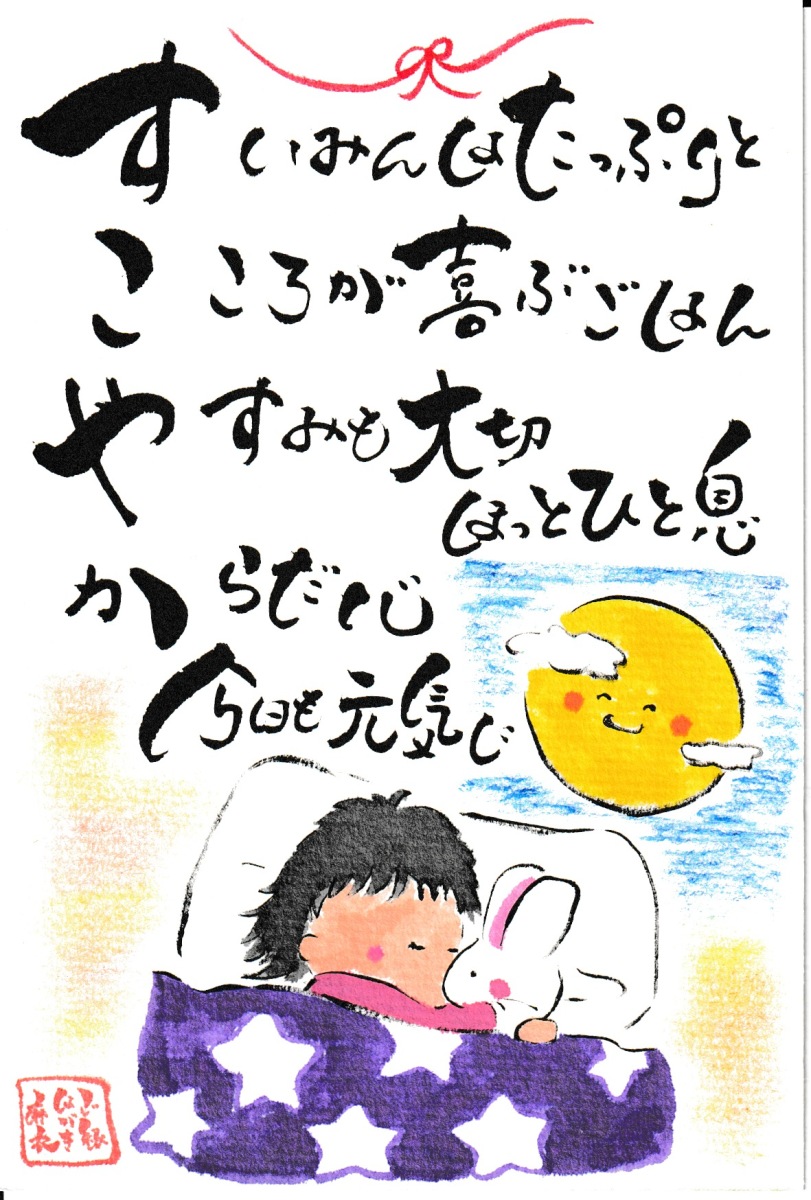 すいみんはたっぷりと
こころが喜ぶごはん
やすみも大切
ほっとひと息
からだ心
今日も元気じ
ご縁
はがき